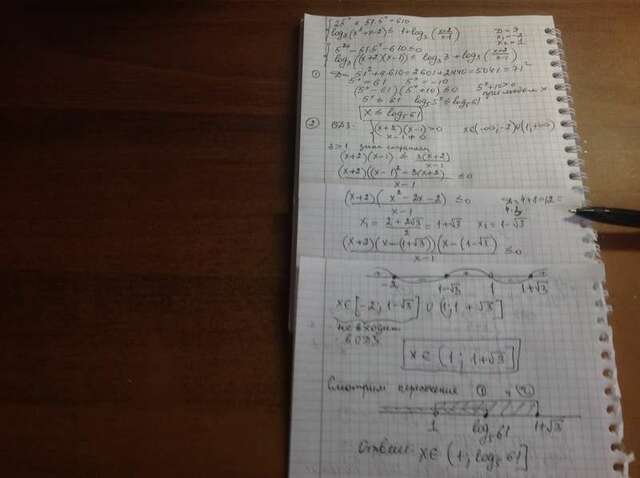 25ˣ - 51·5ˣ - 610
log₃(x²+x-2) ≤ 1+log₃(x+2/x-1)
D = 9
x₁ = -2
x₂ = 1
5²ˣ - 51·5ˣ - 610 ≤ 0
log₃((x+2)(x-1)) ≤ log₃3 + log₃(x+2/x-1)
① D = 51² + 4·610 = 2601 + 2440 = 5041 = 71²
5ˣ = 61 5ˣ = -10
(5ˣ - 61)(5ˣ + 10) ≤ 0 5ˣ+10 > 0 при любом x
5ˣ ≤ 61 log₅5ˣ ≤ log₅61
x ≤ log₅61
② ОДЗ: (x+2)(x-1) > 0 x∈(-∞; -2)∪(1; +∞)
x-1 ≠ 0
3 > 1 знак сохраняем
(x+2)(x-1) ≤ 3(x+2)/x-1
(x+2)((x-1)² - 3(x+2)/x-1 ≤ 0
(x+2)(x² - 2x - 2)/x-1 ≤ 0 D = 4+4·2 = 12 =
4·3
x₁ = 2+2√3/2 = 1+√3 x₂ = 1-√3
(x+2)(x-(1+√3))(x-(1-√3))/x-1 ≤ 0
+ - + - +
-2 1-√3 1 1+√3
x∈[-2; 1-√3] ∪ (1; 1+√3]
не входит
в ОДЗ
x∈(1; 1+√3]
Смотрим пересечения ① и ②
1 log₅61 1+√3
Ответ: x∈(1; log₅61]